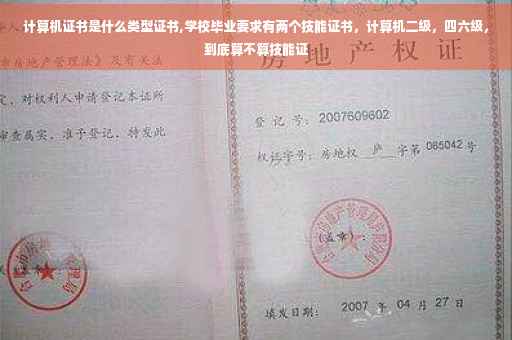 计算机证书是什么类型证书,学校毕业要求有两个技能证书，计算机二级，四六级，
到底算不算技能证
房地产权证
市房地产管理法》及有关法
定，对权利人申请登记本证所
审查属实，准予登记，特发此
登记号：2007609602
权证字号：房地权 庐 字第 085042 号
(盖章)：
填发日期：2007 年 04 月 27 日